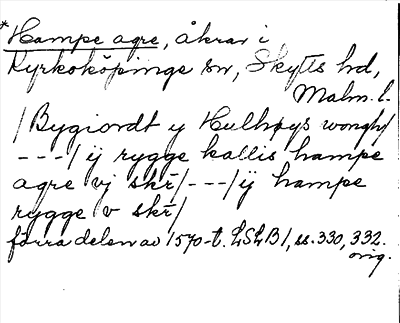 *Hampe agre, åkrar i
Kyrkoköpinge sn, Skytts hd,
Malm. l.
/Bygiordt y Hulhøys wongh/
---/ ij rygge kallis hampe
agre vj skr̄/---/ij hampe
rygge v skr̄/
förra delen av 1570-t. LSLB1, ss. 330, 332.
orig.